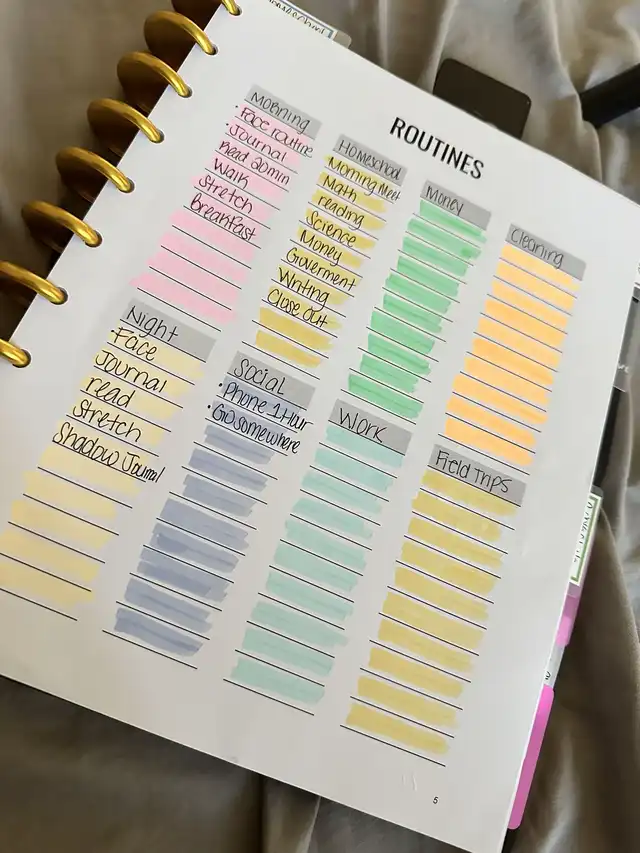 ROUTINES
Morning
• Face routine
• Journal
Read 20min
Walk
Stretch
Breakfast
Homeschool
Morning Meet
Math
reading
Science
Money
Goverment
Writing
Close Out
Money
Cleaning
Night
• Face
Journal
read
Stretch
Shadow Journal
Social
• Phone 1 Hour
• Go somewhere
Work
Field Trips
5